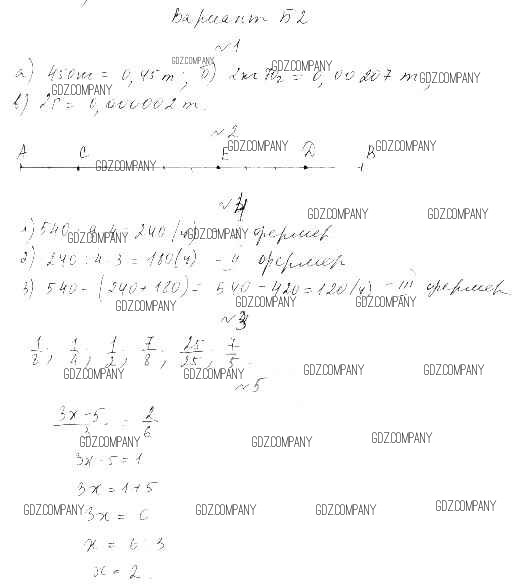 Вариант Б2
№1
а) 450 m = 0,45 т; б) 2кг 70г = 0,00207 т;
в) 2г = 0,000002 т.
№2
A C E D B
№4
1) 540 : 9 · 4 = 240 (ч) - I фермер
2) 240 : 4 · 3 = 180 (ч) - II фермер
3) 540 - (240 + 180) = 540 - 420 = 120 (ч) - III фермер
№3
1/8; 1/4; 1/2; 7/8; 25/25; 7/5.
№5
(3x - 5)/3 = 2/6
3x - 5 = 1
3x = 1 + 5
3x = 6
x = 6 : 3
x = 2.
GDZ.COMPANY